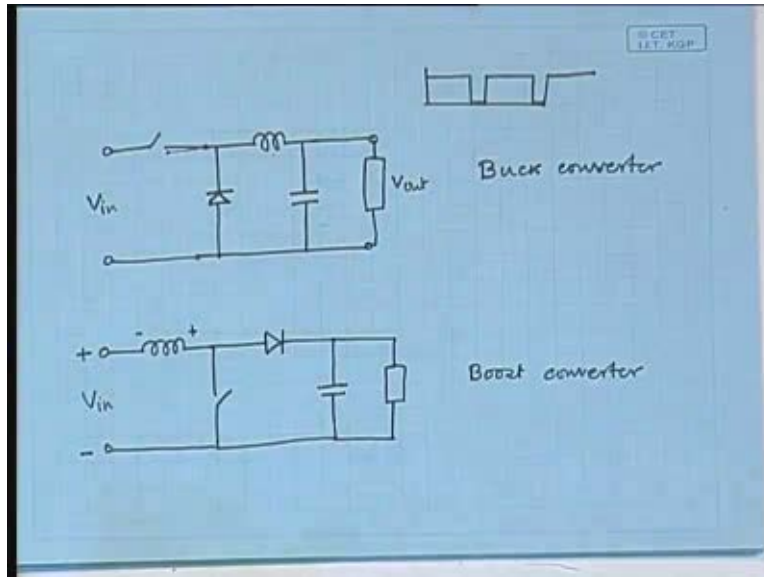 © CET
I.I.T. KGP
Vin
Vout
Buck converter
- +
+
Vin
-
Boost converter